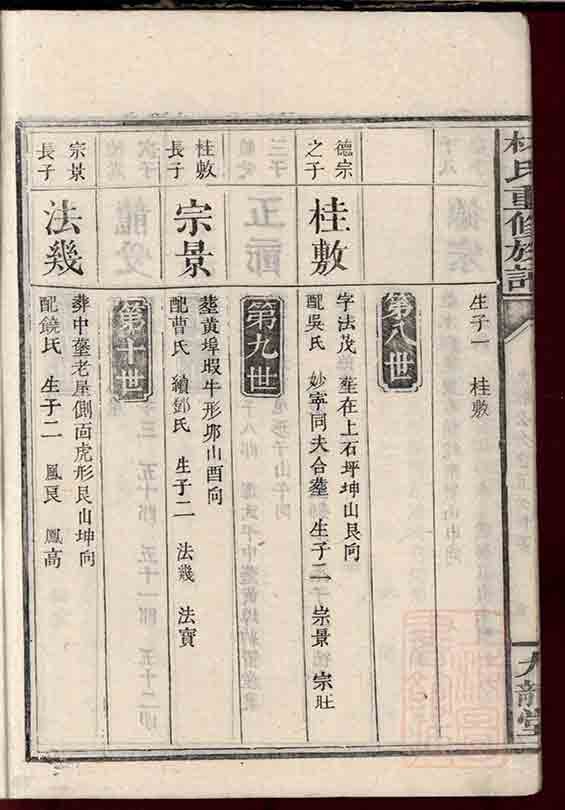 林氏重修族譜
九龍堂
生子一 桂敷
第八世
德宗
之子
桂敷
字法茂 塟在上石坪坤山艮向
配吳氏 妙寧同夫合塟 生子二 宗景 宗旺
第九世
桂敷
長子
宗景
塟黃埠蝦牛形夘山酉向
配曹氏 續鄧氏 生子二 法幾 法寶
第十世
宗景
長子
法幾
葬中塟老屋側面虎形艮山坤向
配饒氏 生子二 鳳良 鳳高